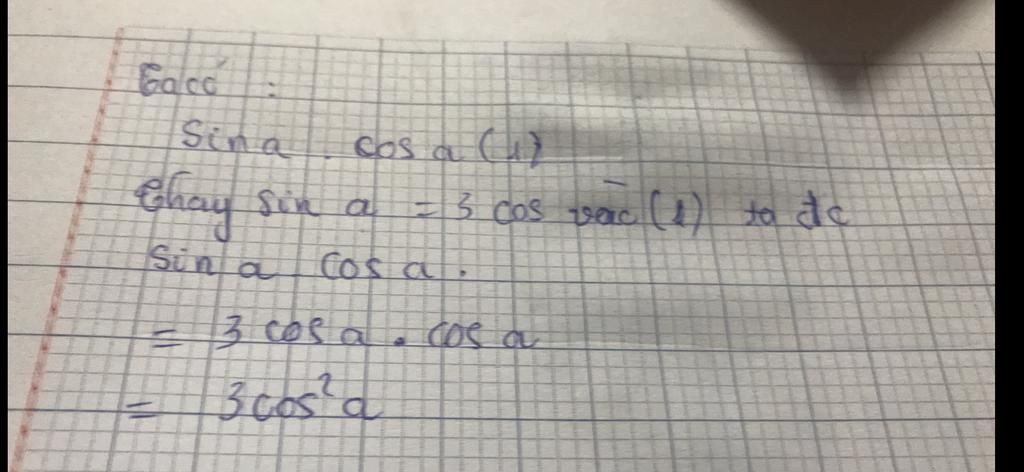 Ta có :
Sin a . cos a (1)
Thay sin a = 3 cos vào (1) ta dc
Sin a cos a .
= 3 cos a . cos a
= 3cos²a